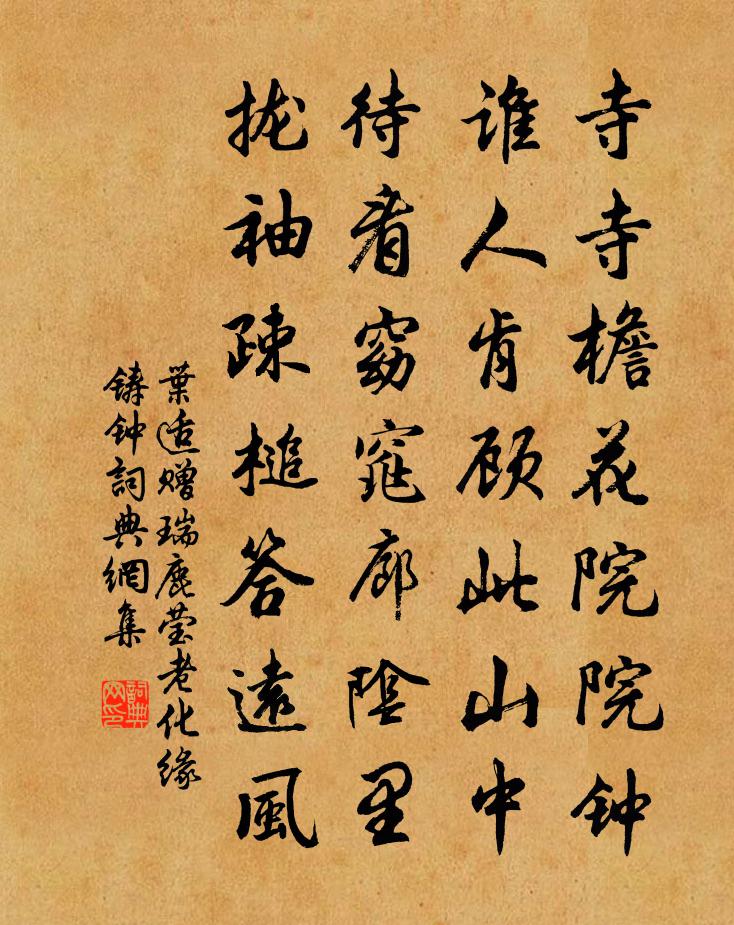 寺寺檐花院院钟
谁人肯顾此山中
待看窈窕廊阴里
拢袖疎槌答远風
葉适赠瑞鹿莹老化缘
铸钟詞典網集
詞典网印